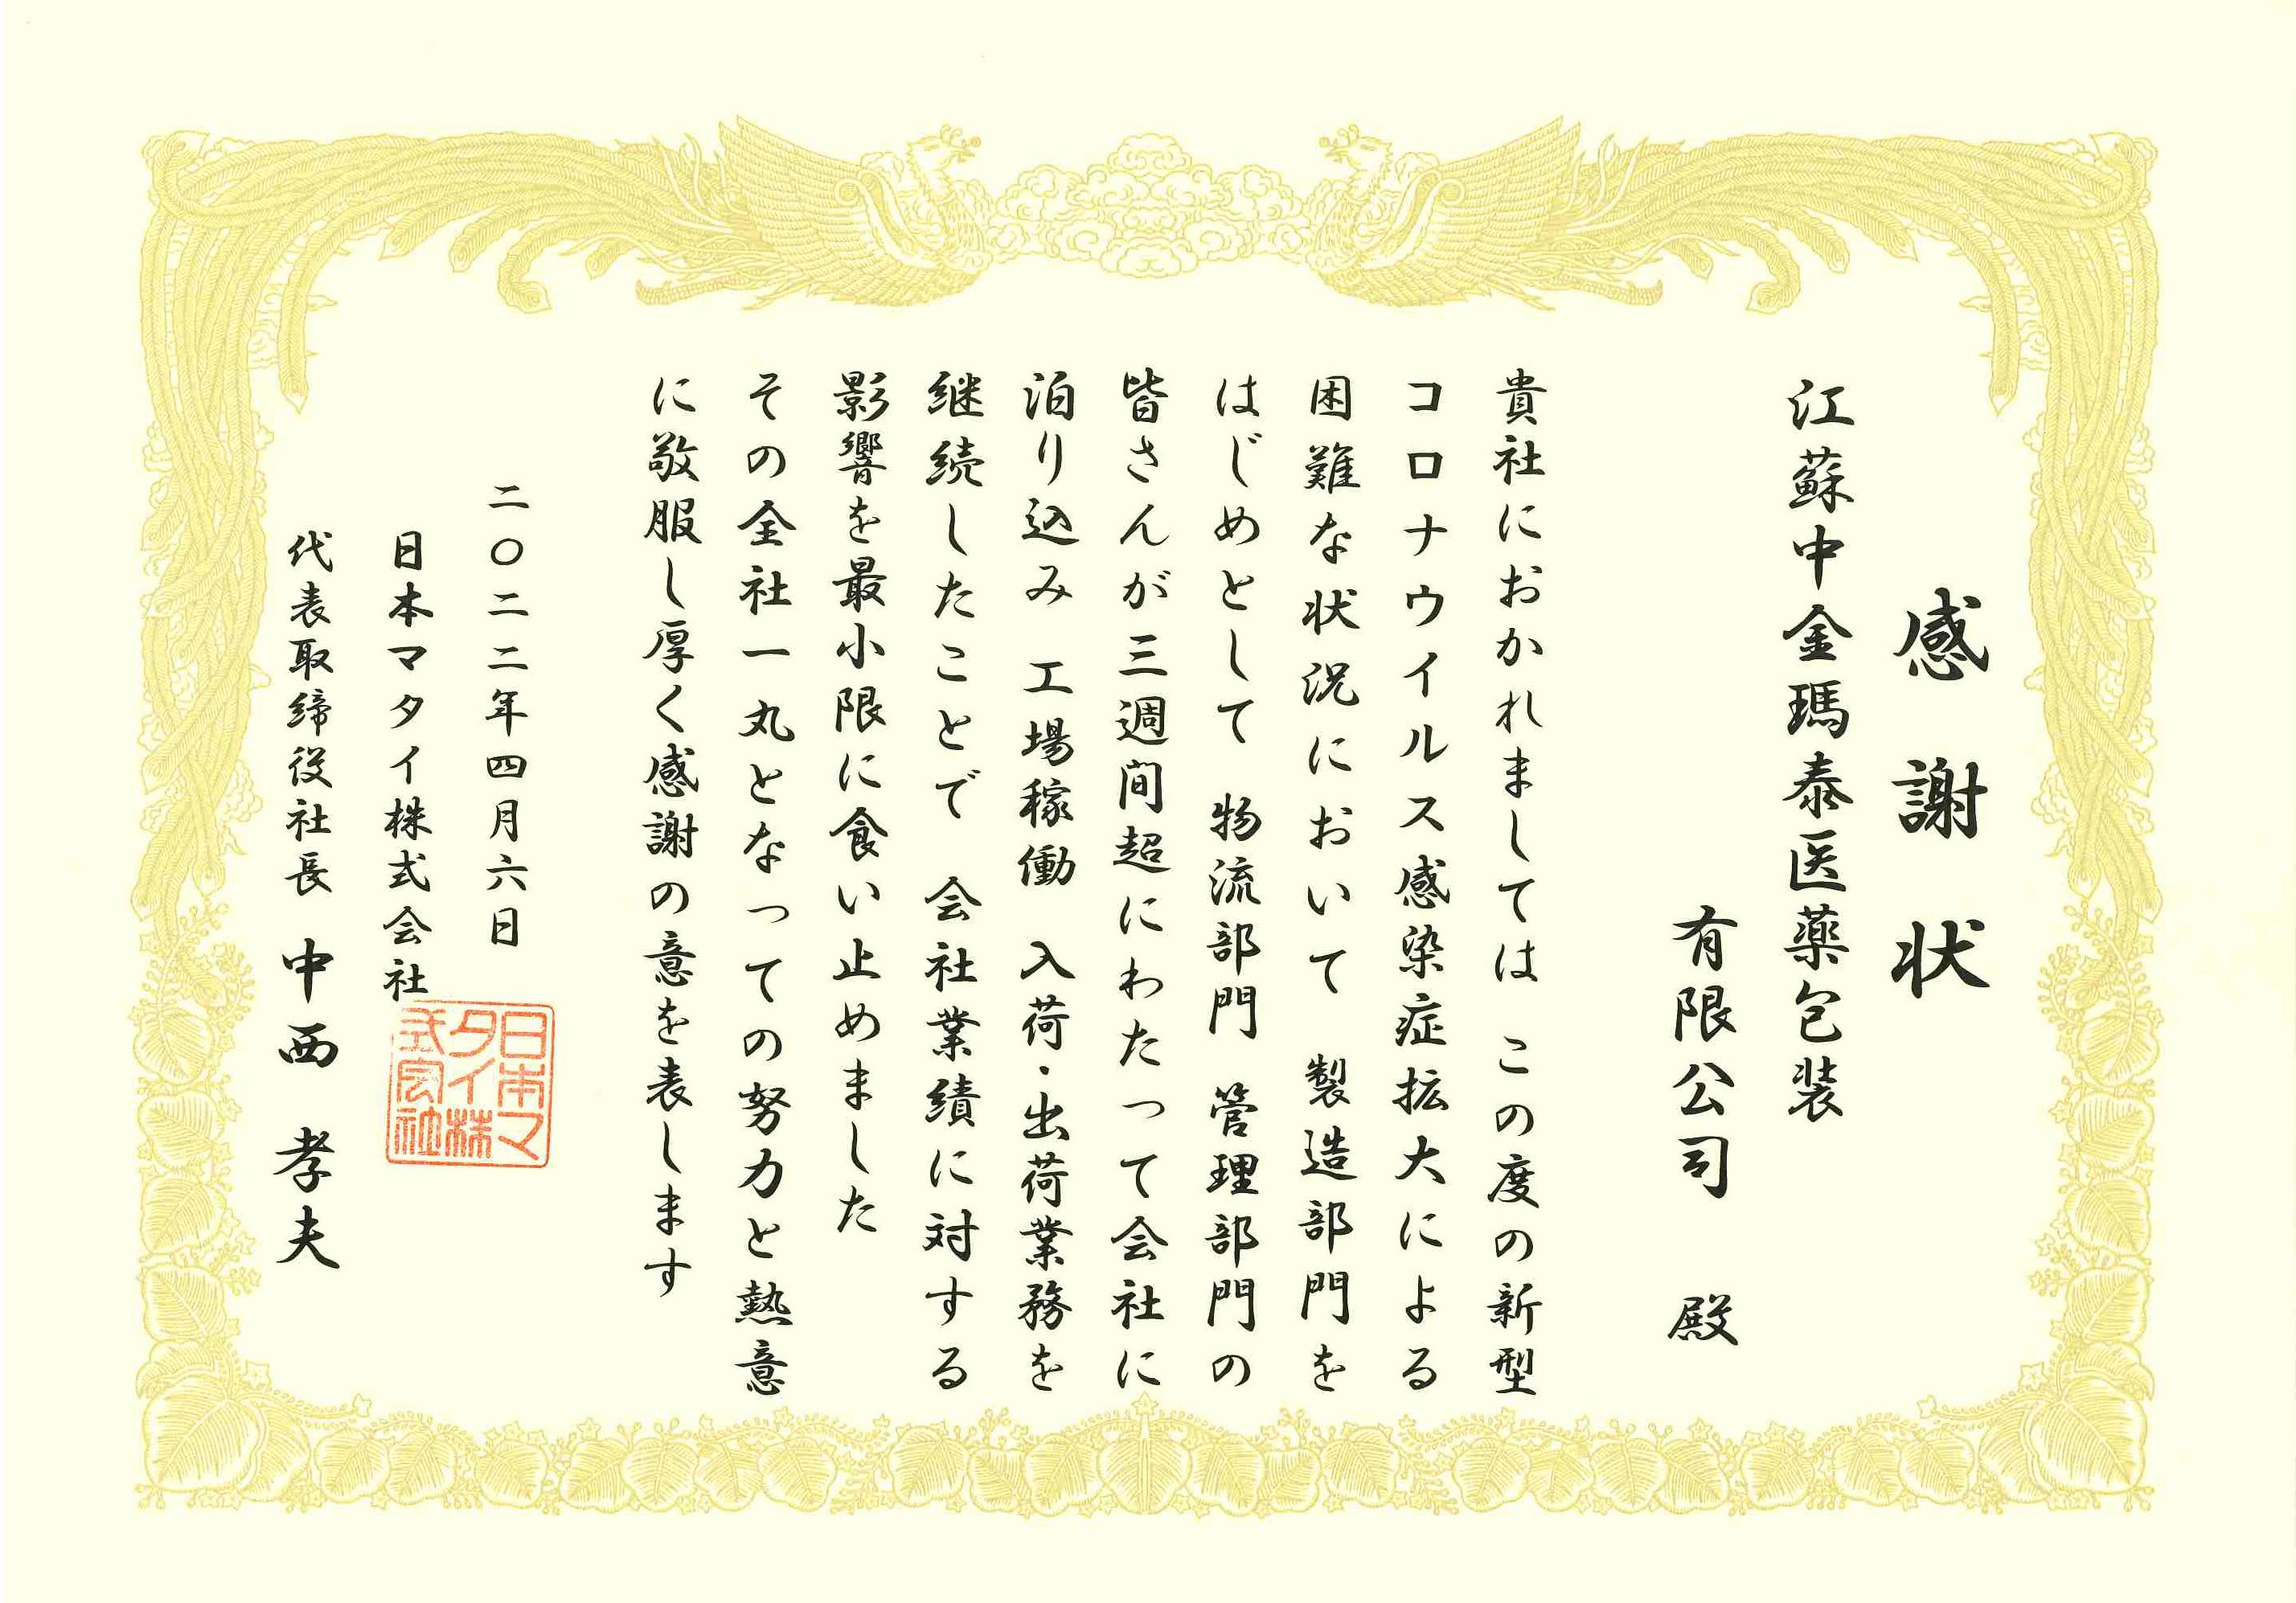 感謝状
江蘇中金瑪泰医薬包装
有限公司 殿
貴社におかれましては この度の新型
コロナウイルス感染症拡大による
困難な状況において 製造部門を
はじめとして 物流部門 管理部門の
皆さんが三週間超にわたって会社に
泊り込み 工場稼働 入荷・出荷業務を
継続したことで 会社業績に対する
影響を最小限に食い止めました
その全社一丸となっての努力と熱意
に敬服し厚く感謝の意を表します
二〇二二年四月六日
日本マタイ株式会社
代表取締役社長 中西 孝夫
日本マ
タイ株
式会社